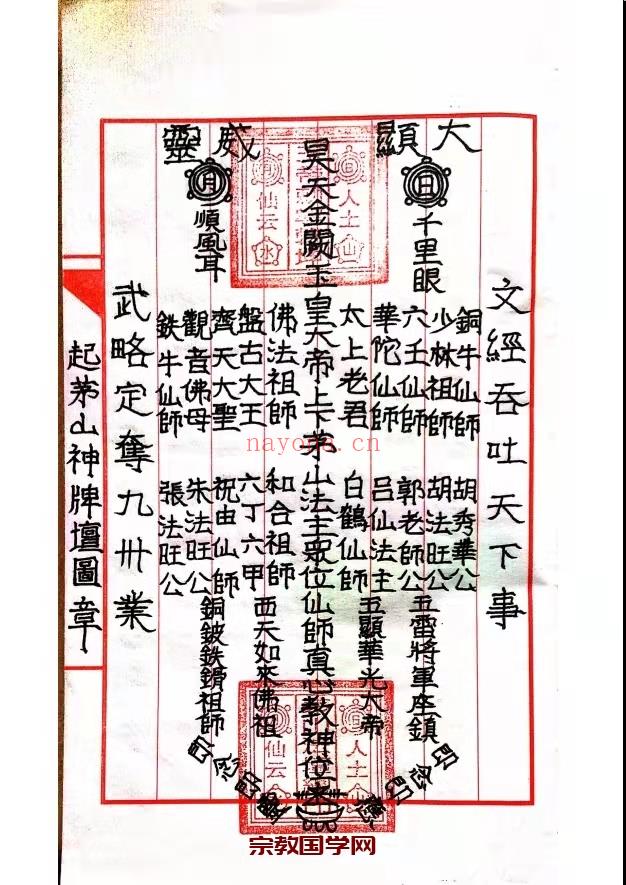 大顯威靈
文經吞吐天下事
日
千里眼
銅牛仙師
胡秀華公
少林祖師
胡法旺公
六壬仙師
郭老師公
五雷將軍座鎮
華陀仙師
呂仙法主
太上老君
白鶴仙師
五顯華光大帝
昊天金闕玉皇大帝上茅山法主眾位仙師真心教神位
佛法祖師
和合祖師
盤古大王
六丁六甲
西天如來佛祖
齊天大聖
祝由仙師
月
順風耳
觀音佛母
朱法旺公
銅鈹鉄鎖祖師
鉄牛仙師
張法旺公
武略定奪九卅業
起茅山神牌壇圖章
nayona.cn
宗教国学网